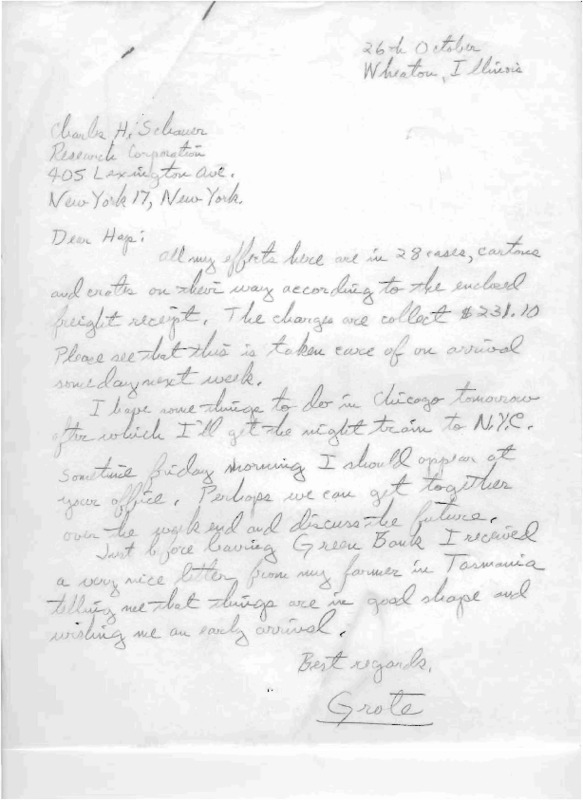 26th October
Wheaton, Illinois
Charles H. Schauer
Research Corporation
405 Lexington Ave.
New York 17, New York.
Dear Hap:
All my efforts here are in 28 cases, cartons
and crates on their way according to the enclosed
freight receipt. The charges are collect $231.10
Please see that this is taken care of on arrival
someday next week.
I have some things to do in Chicago tomorrow
after which I'll get the night train to N.Y.C.
Sometime Friday morning I should appear at
your office. Perhaps we can get together
over the week end and discuss the future.
Just before leaving Green Bank I received
a very nice letter from my farmer in Tasmania
telling me that things are in good shape and
wishing me an early arrival.
Best regards,
Grote